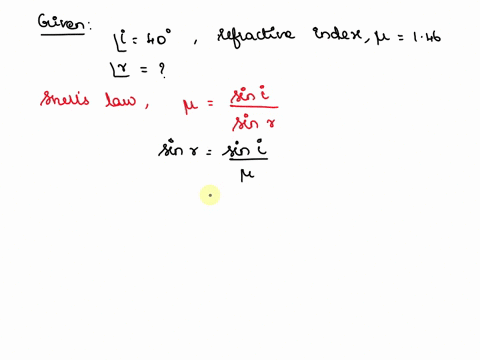 Given:
∠i = 40° , refractive index, μ = 1.46
∠r = ?
Snell's law, μ = sin i / sin r
sin r = sin i / μ